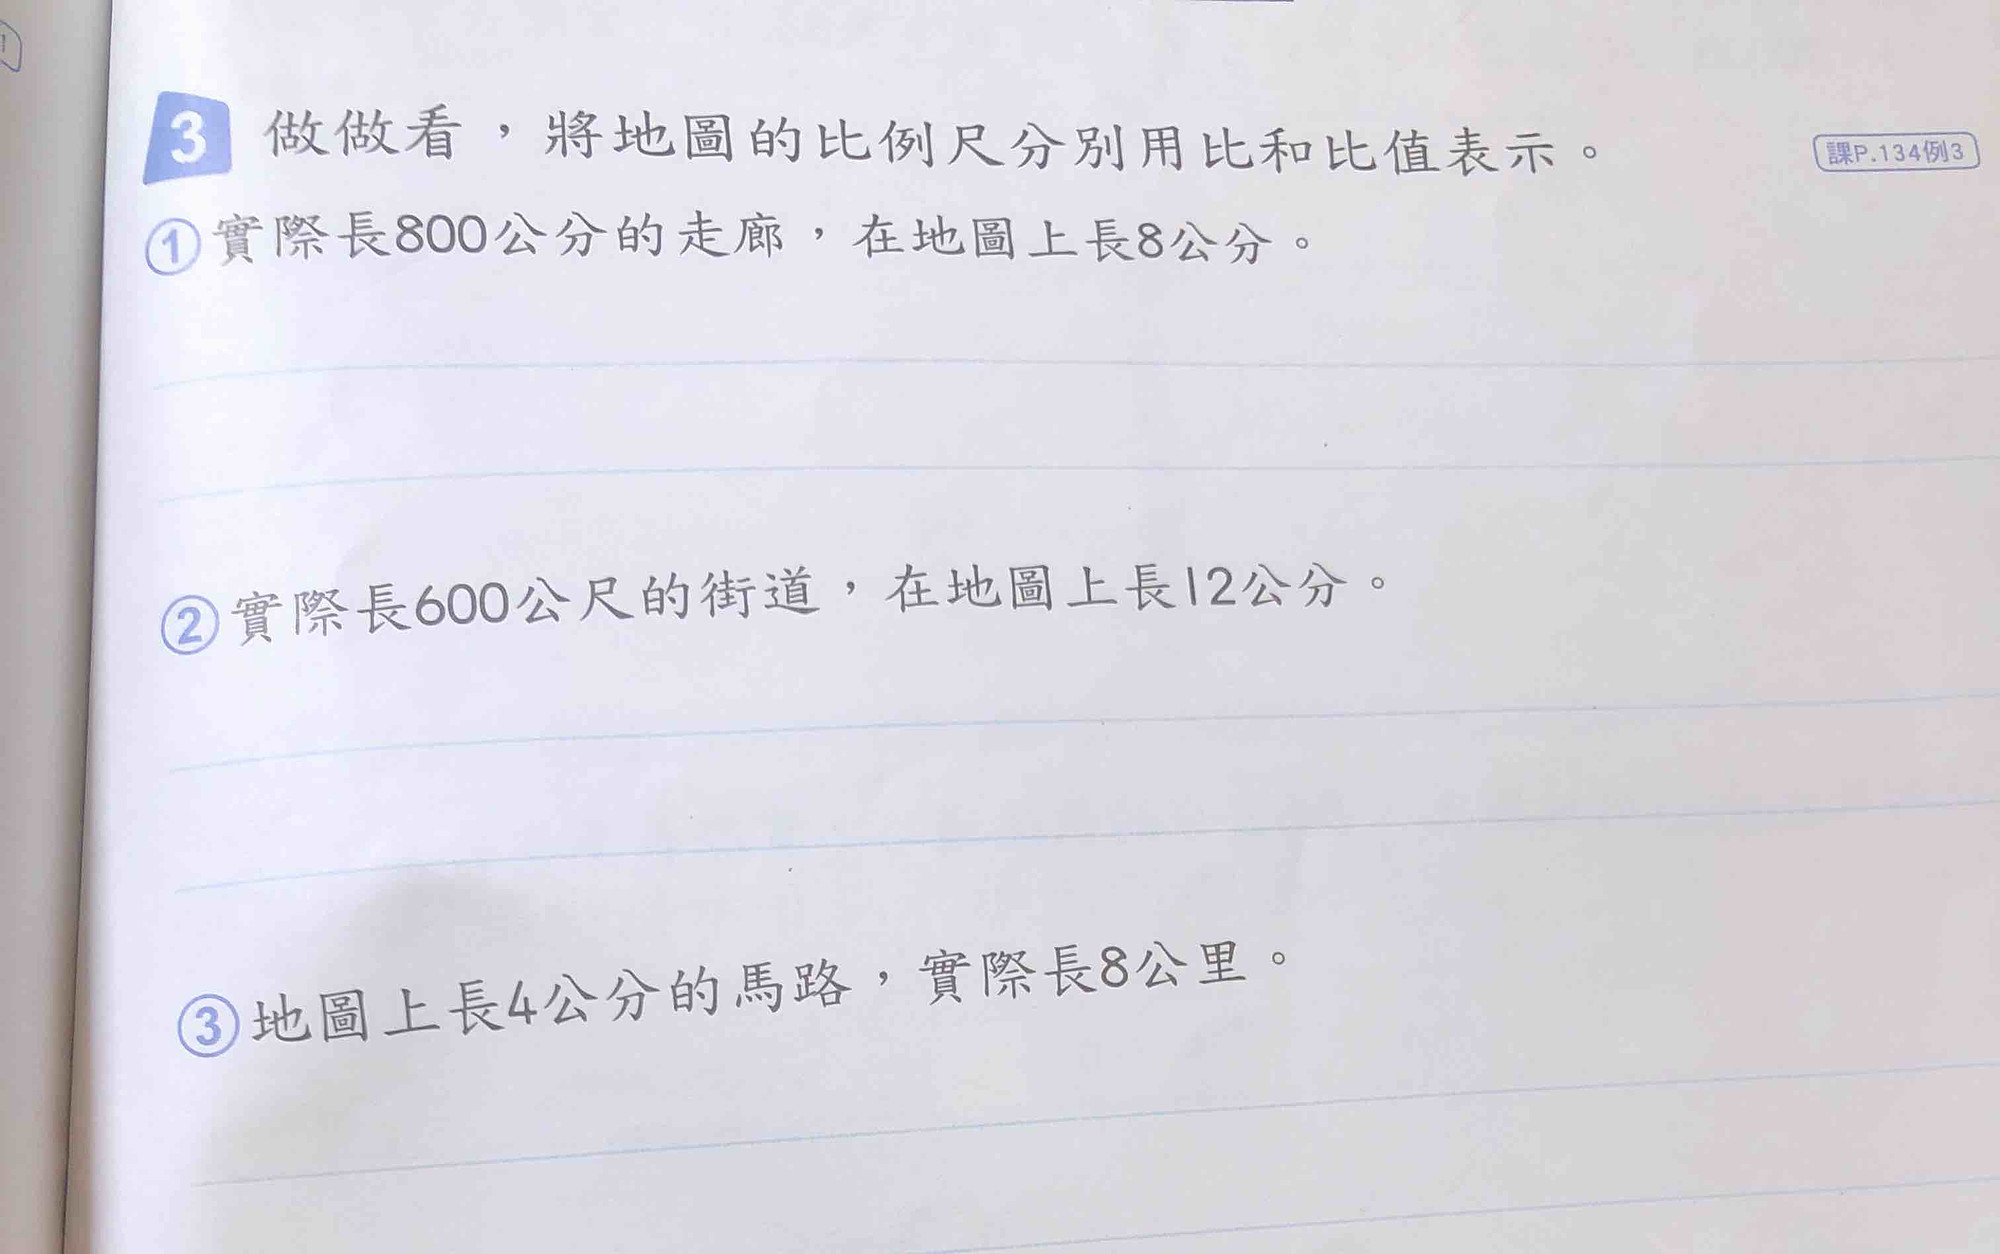 3 做做看，將地圖的比例尺分別用比和比值表示。 課P.134例3
①實際長800公分的走廊，在地圖上長8公分。
②實際長600公尺的街道，在地圖上長12公分。
③地圖上長4公分的馬路，實際長8公里。